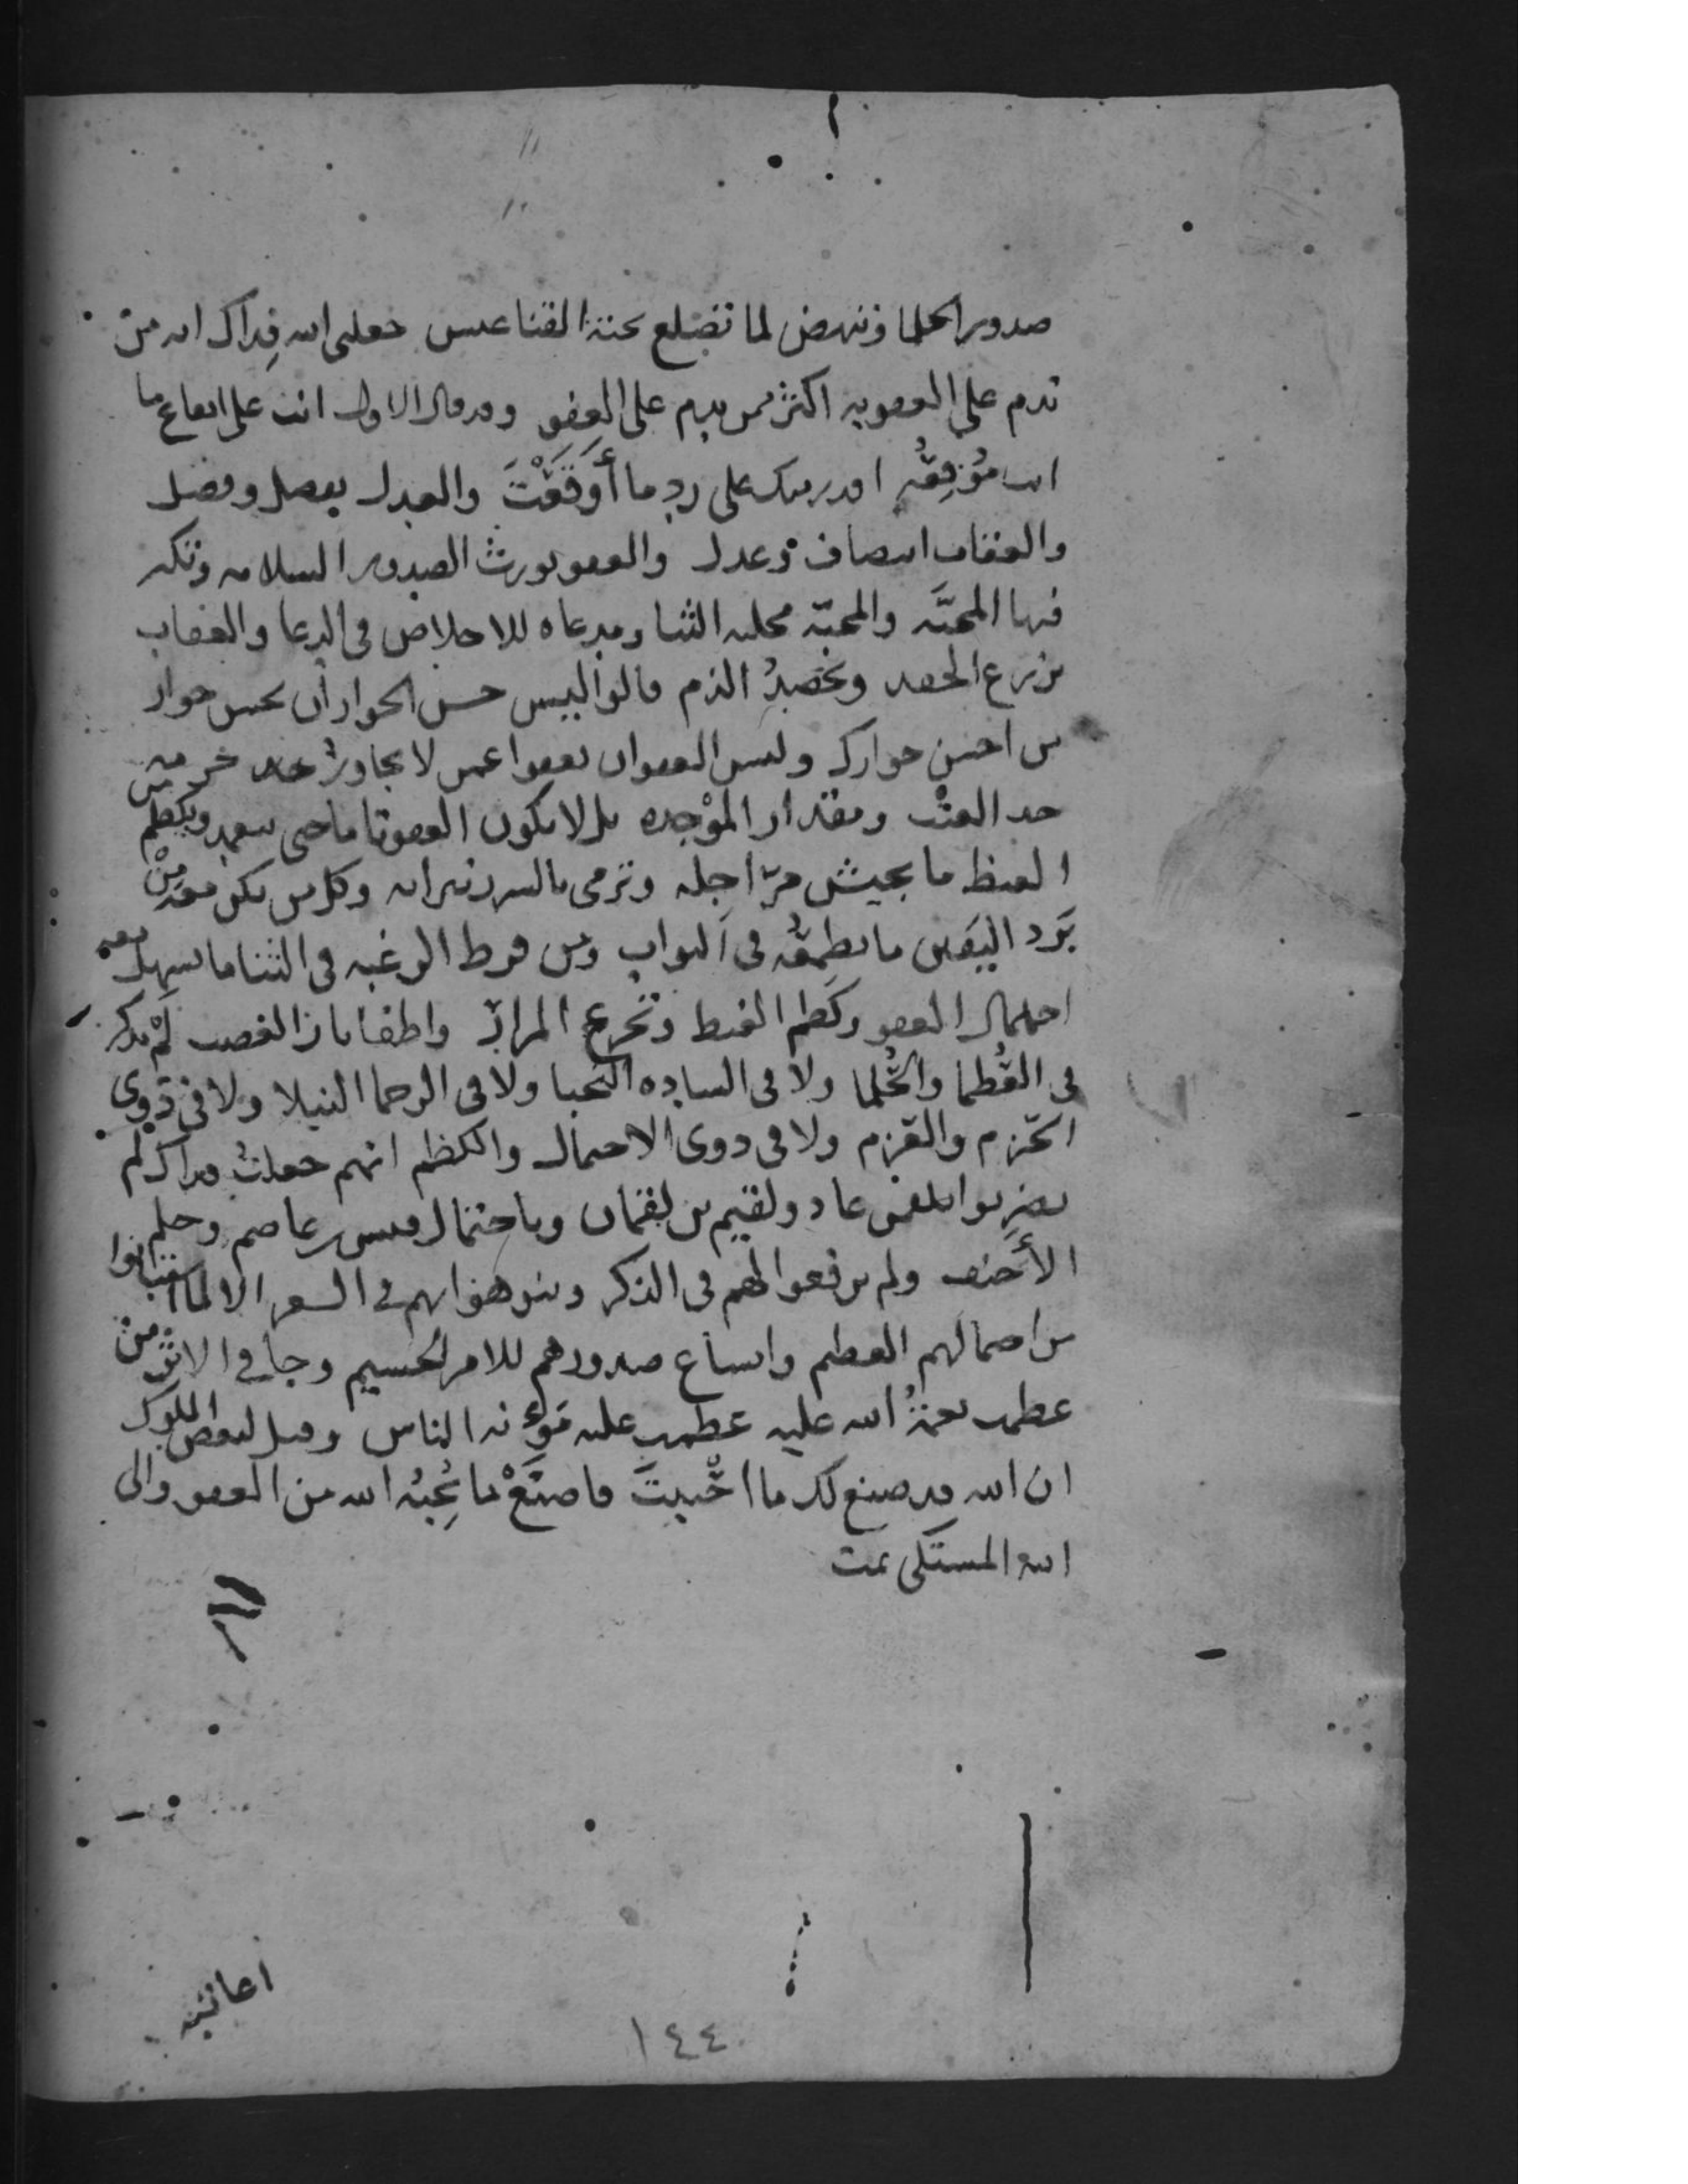 صدور الحلما وتنهض لما تضلع عنه القناعيس جعلنى الله فداك انه من
ندم على العقوبه اكثر ممن يندم على العفو وقد قال الاول انت على ايقاع ما
انت مُوقِعُه اقدر منك على رد ما أَوْقَعْتَ والعدل يفصل وفضل
والعقاب انصاف وعدل والعفو يورث الصدور السلامه وتكثر
فيها المحبَّه والمحبّه مجلبه الثنا ومدعاه للاخلاص فى الدعا والعقاب
يزرع الحقد ويحصِدُ الذم قالوا ليس حسن الجوار ان تحسن جوار
من احسن جوارك وليس العفو ان تعفوا عمن لا يجاوز حد
حد العتْب ومقدار الموْجِده بل لا يكون العفو تاما حتى يتغمد ويكظم
الغيظ ما يجيش مرّا جله وترمى بالشرر نيرانه وكل من يكن معه مِنْ
بَرْد اليَقين ما يطمعُه فى الثواب ومن فرط الرغبه فى الثنا ما يسهل معه
احتمال العفو وكَظم الغيظ وتجرع المراره واطفا نار الغضب لَمْ يذكر
فى العُظما والحُلما ولا فى الساده النُّجبا ولا فى الرحما النبلا ولا فى ذوى
الحزم والعزم ولا فى ذوى الاحتمال والكظم انهم جعلتُ فداك لم
يضربوا بلقمن عاد ولقيم بن لقمان وباحتمال قيس بن عاصم وحلم
الأَحنف ولم يرفعوا لهم فى الذكر وينوهوا بهم فى الشعر الا لما استبانوا
من احتمالهم العظيم واتساع صدورهم للامر الجسيم وجا فى الاثر من
عظمت نعمةُ الله عليه عظمت عليه مَؤنه الناس وقيل لبعض الملوك
ان الله قد صنع لك ما احْببتَ فاصنَعْ ما يُحِبُه الله من العفو والى
الله المشتكى تمت
١٤٤